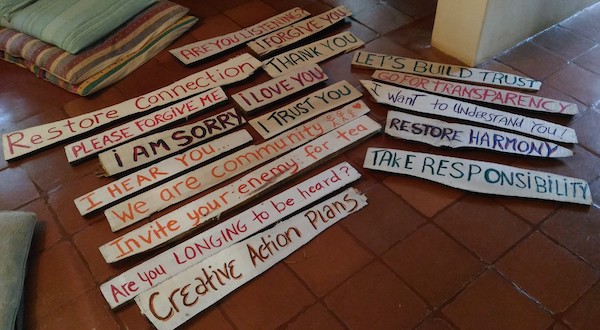 ARE YOU LISTENING?
I FORGIVE YOU
THANK YOU
Restore Connection
PLEASE FORGIVE ME
I LOVE YOU
I AM SORRY
I TRUST YOU
I HEAR YOU...
We are community
Invite your enemy for tea
Are you LONGING to be heard?
Creative Action Plans
LET'S BUILD TRUST
GO FOR TRANSPARENCY
I want to UNDERSTAND YOU!
RESTORE HARMONY
TAKE RESPONSIBILITY